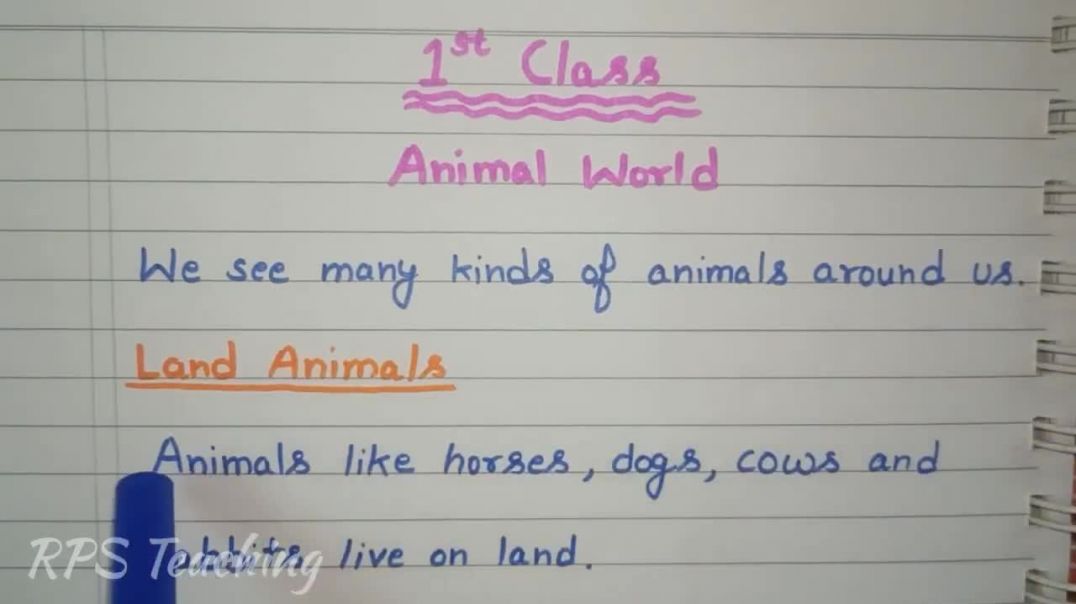 1st Class
Animal World
We see many kinds of animals around us.
Land Animals
Animals like horses, dogs, cows and
live on land.
RPS Teaching